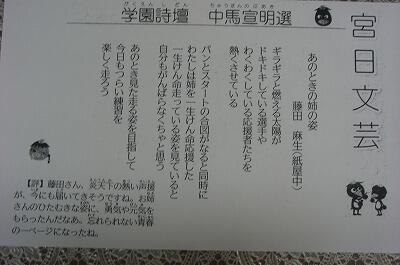 学園詩壇　中馬宣明選
がくえんしだん　ちゅうまんのぶあき
宮日文芸
あのときの姉の姿
藤田　麻生（紙屋中）
ギラギラと燃える太陽が
ドキドキしている選手や
わくわくしている応援者たちを
熱くさせている
パンとスタートの合図がなると同時に
わたしは姉を一生けん命応援した
一生けん命走っている姿を見ていると
自分もがんばらなくちゃと思う
あのとき見た走る姿を目指して
今日もつらい練習を
楽しく走ろう
【評】藤田さん、炎天下の熱い声援
が、今にも届いてきそうですね。お姉
さんのひたむきな姿に、勇気や元気を
もらったんだなあ。忘れられない青春
の一ページになったね。